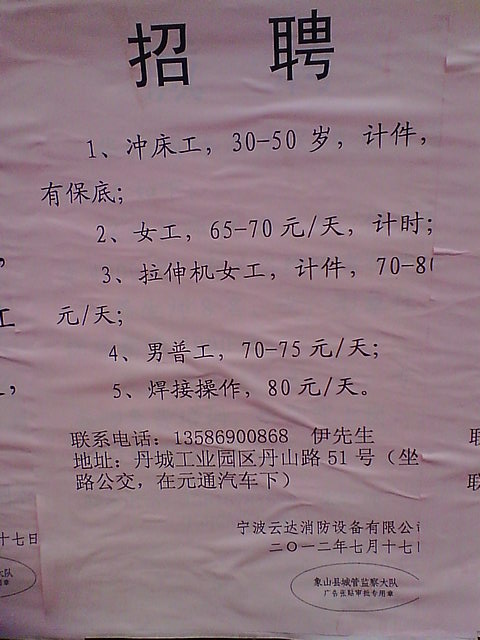 招 聘
1、冲床工，30-50 岁，计件，
有保底；
2、女工，65-70 元/天，计时；
3、拉伸机女工，计件，70-80
元/天；
4、男普工，70-75 元/天；
5、焊接操作，80 元/天。
联系电话：13586900868 伊先生
地址：丹城工业园区丹山路 51 号（坐
路公交，在元通汽车下）
宁波云达消防设备有限公
二〇一二年七月十七
象山县城管监察大队
广告张贴审批专用章
工
联
联
十七日
大队
用章